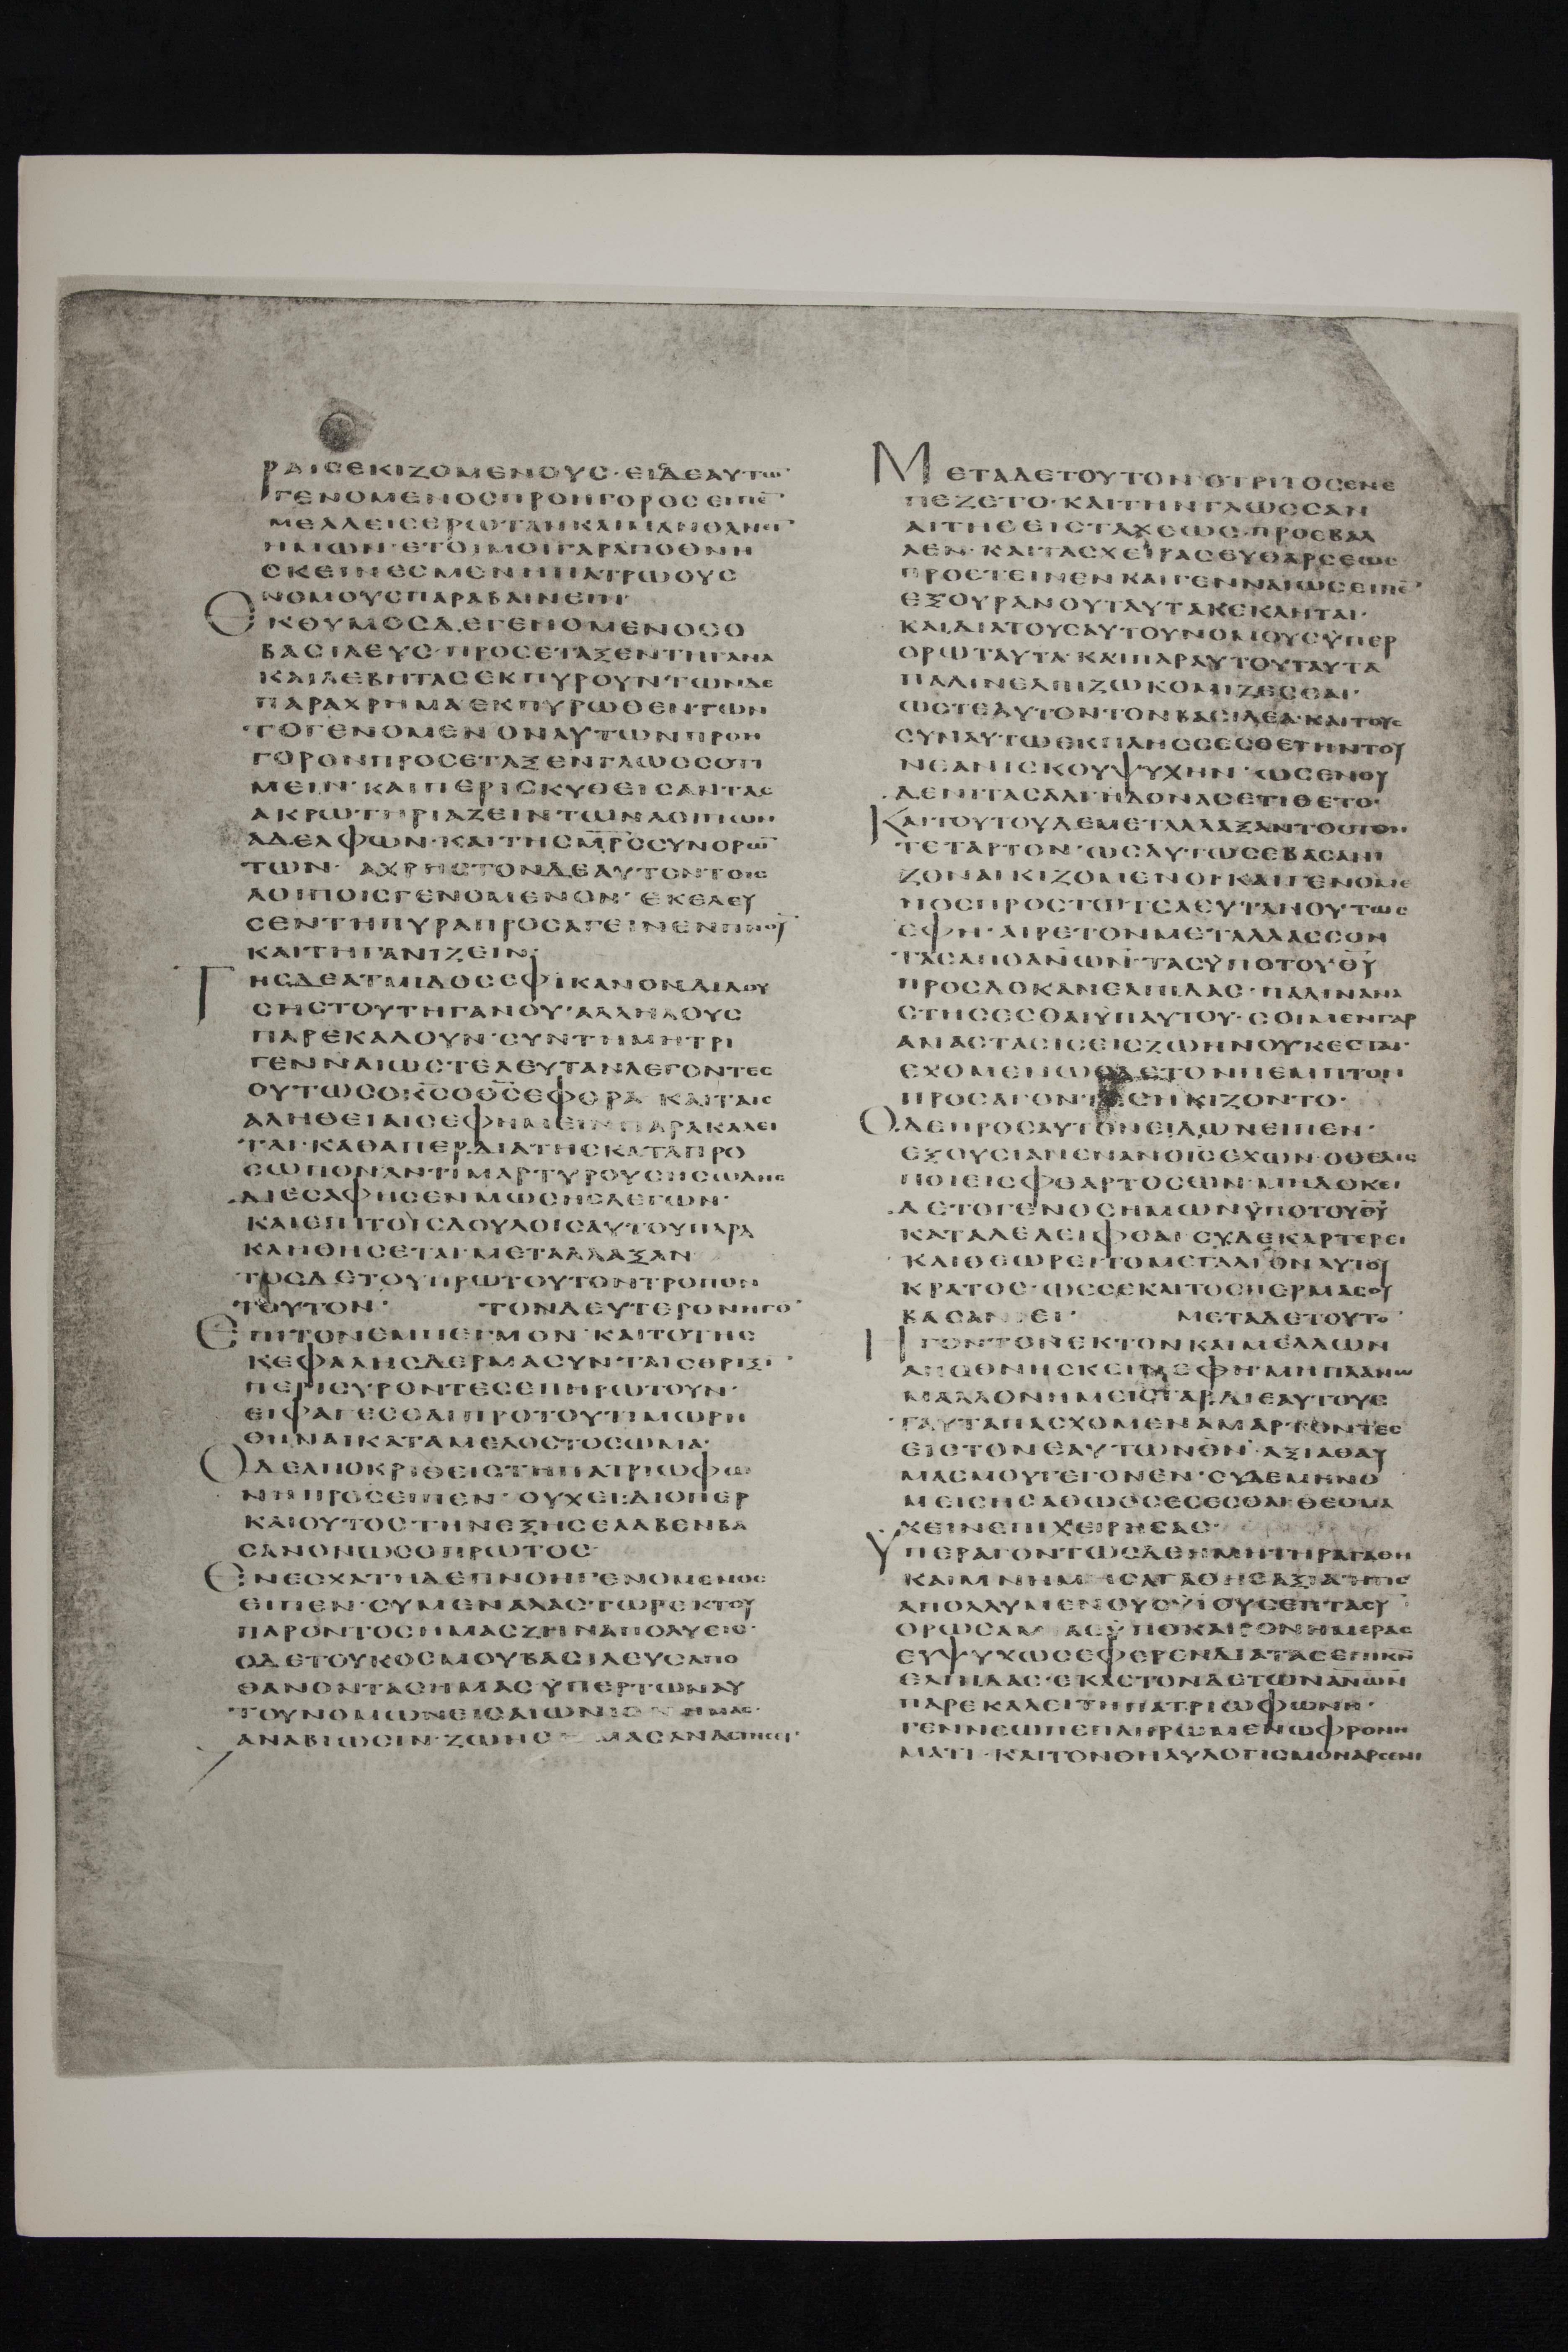 ΡΑΙΣΕΚΙΖΟΜΕΝΟΥΣ·ΕΙΣΔΕΑΥΤΩ͂·
ΓΕΝΟΜΕΝΟΣΠΡΟΗΓΟΡΟΣΕΙΠΕ̅·
ΜΕΛΛΕΙΣΕΡΩΤΑΝΚΑΙΜΑΝΘΑΝΕΙ̅
ΗΜΩΝ·ΕΤΟΙΜΟΙΓΑΡΑΠΟΘΝΗ
ΣΚΕΙΝΕΣΜΕΝΗΠΑΤΡΩΟΥΣ
ΝΟΜΟΥΣΠΑΡΑΒΑΙΝΕΙΝ·
ΕΚΘΥΜΟΣΔΕΓΕΝΟΜΕΝΟΣΟ
ΒΑΣΙΛΕΥΣ·ΠΡΟΣΕΤΑΞΕΝΤΗΓΑΝΑ
ΚΑΙΛΕΒΗΤΑΣΕΚΠΥΡΟΥΝΤΩΝΔΕ
ΠΑΡΑΧΡΗΜΑΕΚΠΥΡΩΘΕΝΤΩΝ
ΤΟΓΕΝΟΜΕΝΟΝΑΥΤΩΝΠΡΟΗ
ΓΟΡΟΝΠΡΟΣΕΤΑΞΕΝΓΛΩΣΣΟΤΟ
ΜΕΙΝ·ΚΑΙΠΕΡΙΣΚΥΘΕΙΣΑΝΤΑΣ
ΑΚΡΩΤΗΡΙΑΖΕΙΝΤΩΝΛΟΙΠΩΝ
ΑΔΕΛΦΩΝ·ΚΑΙΤΗΣΜ̅Ρ̅Ο̅ΣΣΥΝΟΡΩ̅
ΤΩΝ· ΑΧΡΗΣΤΟΝΔΕΑΥΤΟΝΤΟΙΣ
ΛΟΙΠΟΙΣΓΕΝΟΜΕΝΟΝ·ΕΚΕΛΕΥ
ΣΕΝΤΗΠΥΡΑΠΡΟΣΑΓΕΙΝΕΝΠΝΟΥ̅
ΚΑΙΤΗΓΑΝΙΖΕΙΝ·
ΤΗΣΔΕΑΤΜΙΔΟΣΕΦΙΚΑΝΟΝΔΙΔΟΥ
ΣΗΣΤΟΥΤΗΓΑΝΟΥ·ΑΛΛΗΛΟΥΣ
ΠΑΡΕΚΑΛΟΥΝ·ΣΥΝΤΗΜΗΤΡΙ
ΓΕΝΝΑΙΩΣΤΕΛΕΥΤΑΝΛΕΓΟΝΤΕΣ
ΟΥΤΩΣΟΚ̅Σ̅ΟΘ̅Σ̅ΕΦΟΡΑ ΚΑΙΤΑΙΣ
ΑΛΗΘΕΙΑΙΣΕΦΗΜΕΙΝΠΑΡΑΚΑΛΕΙ
ΤΑΙ·ΚΑΘΑΠΕΡΔΙΑΤΗΣΚΑΤΑΠΡΟ
ΣΩΠΟΝΑΝΤΙΜΑΡΤΥΡΟΥΣΗΣΩΔΗΣ
ΔΙΕΣΑΦΗΣΕΝΜΩΣΗΣΛΕΓΩΝ·
ΚΑΙΕΠΙΤΟΙΣΔΟΥΛΟΙΣΑΥΤΟΥΠΑΡΑ
ΚΛΗΘΗΣΕΤΑΙ·ΜΕΤΑΛΛΑΞΑΝ
ΤΟΣΔΕΤΟΥΠΡΩΤΟΥΤΟΝΤΡΟΠΟΝ
ΤΟΥΤΟΝ· ΤΟΝΔΕΥΤΕΡΟΝΗΓΟ̅
ΕΠΙΤΟΝΕΜΠΕΓΜΟΝ·ΚΑΙΤΟΤΗΣ
ΚΕΦΑΛΗΣΔΕΡΜΑΣΥΝΤΑΙΣΘΡΙΞΙ̅
ΠΕΡΙΣΥΡΟΝΤΕΣΕΠΗΡΩΤΟΥΝ·
ΕΙΦΑΓΕΣΣΑΙΠΡΟΤΟΥΤΙΜΩΡΗ
ΘΗΝΑΙΚΑΤΑΜΕΛΟΣΤΟΣΩΜΑ·
ΟΔΕΑΠΟΚΡΙΘΕΙΣΤΗΠΑΤΡΙΩΦΩ
ΝΗΠΡΟΣΕΙΠΕΝ·ΟΥΧΕΙ:ΔΙΟΠΕΡ
ΚΑΙΟΥΤΟΣΤΗΝΕΞΗΣΕΛΑΒΕΝΒΑ
ΣΑΝΟΝΩΣΟΠΡΩΤΟΣ·
ΕΝΕΣΧΑΤΗΔΕΠΝΟΗΓΕΝΟΜΕΝΟΣ
ΕΙΠΕΝ·ΣΥΜΕΝΑΛΑΣΤΩΡΕΚΤΟΥ
ΠΑΡΟΝΤΟΣΗΜΑΣΖΗΝΑΠΟΛΥΕΙΣ·
ΟΔΕΤΟΥΚΟΣΜΟΥΒΑΣΙΛΕΥΣΑΠΟ
ΘΑΝΟΝΤΑΣΗΜΑΣΫΠΕΡΤΩΝΑΥ
ΤΟΥΝΟΜΩΝΕΙΣΑΙΩΝΙΟΝΗΜΑΣ·
ΑΝΑΒΙΩΣΙΝ·ΖΩΗΣ ΜΑΣΑΝΑΣΤΗΣΕΙ·
ΜΕΤΑΔΕΤΟΥΤΟΝΟΤΡΙΤΟΣΕΝΕ
ΠΕΖΕΤΟ·ΚΑΙΤΗΝΓΛΩΣΣΑΝ
ΑΙΤΗΣΕΙΣΤΑΧΕΩΣ·ΠΡΟΕΒΑΛ
ΛΕΝ·ΚΑΙΤΑΣΧΕΙΡΑΣΕΥΘΑΡΣΕΩΣ
ΠΡΟΕΤΕΙΝΕΝΚΑΙΓΕΝΝΑΙΩΣΕΙΠΕ̅·
ΕΞΟΥΡΑΝΟΥΤΑΥΤΑΚΕΚΛΗΤΑΙ·
ΚΑΙΔΙΑΤΟΥΣΑΥΤΟΥΝΟΜΟΥΣΫΠΕΡ
ΟΡΩΤΑΥΤΑ·ΚΑΙΠΑΡΑΥΤΟΥΤΑΥΤΑ
ΠΑΛΙΝΕΛΠΙΖΩΚΟΜΙΖΕΣΘΑΙ·
ΩΣΤΕΑΥΤΟΝΤΟΝΒΑΣΙΛΕΑ·ΚΑΙΤΟΥΣ
ΣΥΝΑΥΤΩΕΚΠΛΗΣΣΕΣΘΕΤΗΝΤΟΥ
ΝΕΑΝΙΣΚΟΥΨΥΧΗΝ·ΩΣΕΝΟΥ
ΔΕΝΙΤΑΣΑΛΓΗΔΟΝΑΣΕΤΙΘΕΤΟ·
ΚΑΙΤΟΥΤΟΥΔΕΜΕΤΑΛΛΑΞΑΝΤΟΣΤΟΝ
ΤΕΤΑΡΤΟΝ·ΩΣΑΥΤΩΣΕΒΑΣΑΝΙ
ΖΟΝΑΙΚΙΖΟΜΕΝΟΙ·ΚΑΙΓΕΝΟΜΕ
ΝΟΣΠΡΟΣΤΩΤΕΛΕΥΤΑΝΟΥΤΩΣ
ΕΦΗ·ΑΙΡΕΤΟΝΜΕΤΑΛΛΑΣΣΟΝ
ΤΑΣΑΠΟΑΝ̅Ω̅Ν̅·ΤΑΣΫΠΟΤΟΥΘ̅Υ̅
ΠΡΟΣΔΟΚΑΝΕΛΠΙΔΑΣ·ΠΑΛΙΝΑΝΑ
ΣΤΗΣΕΣΘΑΙΫΠΑΥΤΟΥ·ΣΟΙΜΕΝΓΑΡ
ΑΝΑΣΤΑΣΙΣΕΙΣΖΩΗΝΟΥΚΕΣΤΑΙ·
ΕΧΟΜΕΝΩΣΔΕΤΟΝΠΕΜΠΤΟΝ
ΠΡΟΣΑΓΟΝΤΕΣΗΚΙΖΟΝΤΟ·
ΟΔΕΠΡΟΣΑΥΤΟΝΕΙΔΩΝΕΙΠΕΝ·
ΕΞΟΥΣΙΑΝΕΝΑΝΟΙΣΕΧΩΝ·ΟΘΕΛΕΙΣ
ΠΟΙΕΙΣΦΘΑΡΤΟΣΩΝ·ΜΗΔΟΚΕΙ
ΔΕΤΟΓΕΝΟΣΗΜΩΝΫΠΟΤΟΥΘ̅Υ̅
ΚΑΤΑΛΕΛΕΙΦΘΑΙ·ΣΥΔΕΚΑΡΤΕΡΕΙ
ΚΑΙΘΕΩΡΕΙΤΟΜΕΓΑΛΙΟΝΑΥΤΟΥ
ΚΡΑΤΟΣ·ΩΣΣΕΚΑΙΤΟΣΠΕΡΜΑΣΟΥ
ΒΑΣΑΝΙΕΙ· ΜΕΤΑΔΕΤΟΥΤΟ̅
ΗΓΟΝΤΟΝΕΚΤΟΝΚΑΙΜΕΛΛΩΝ
ΑΠΟΘΝΗΣΚΕΙΝΕΦΗ·ΜΗΠΛΑΝΩ
ΜΑΛΛΟΝΗΜΕΙΣΓΑΡΔΙΕΑΥΤΟΥΣ
ΤΑΥΤΑΠΑΣΧΟΜΕΝΑΜΑΡΤΟΝΤΕΣ
ΕΙΣΤΟΝΕΑΥΤΩΝΘ̅Ν̅·ΑΞΙΑΘΑΥ
ΜΑΣΜΟΥΓΕΓΟΝΕΝ·ΣΥΔΕΜΗΝΟ
ΜΕΙΣΗΣΑΘΩΟΣΕΣΕΣΘΑΙ·ΘΕΟΜΑ
ΧΕΙΝΕΠΙΧΕΙΡΗΣΑΣ·
ΥΠΕΡΑΓΟΝΤΩΣΔΕΗΜΗΤΗΡΑΓΑΘΗ
ΚΑΙΜΝΗΜΗΣΑΓΑΘΗΣΑΞΙΑ
ΑΠΟΛΛΥΜΕΝΟΥΣΫΙΟΥΣΕΠΤΑΣΥ̅
ΟΡΩΣΑΜ ΑΣΫΠΟΚΑΙΡΟΝΗΜΕΡΑΣ
ΕΥΨΥΧΩΣΕΦΕΡΕΝΔΙΑΤΑΣΕΠΙΚ̅Ν̅
ΕΛΠΙΔΑΣ·ΕΚΑΣΤΟΝΔΕΤΩΝΑΝ̅Ω̅Ν̅
ΠΑΡΕΚΑΛΕΙΤΗΠΑΤΡΙΩΦΩΝΗ·
ΓΕΝΝΕΩΠΕΠΛΗΡΩΜΕΝΩΦΡΟΝΗ
ΜΑΤΙ·ΚΑΙΤΟΝΘΗΛΥΛΟΓΙΣΜΟΝΑΡΣΕΝΙ